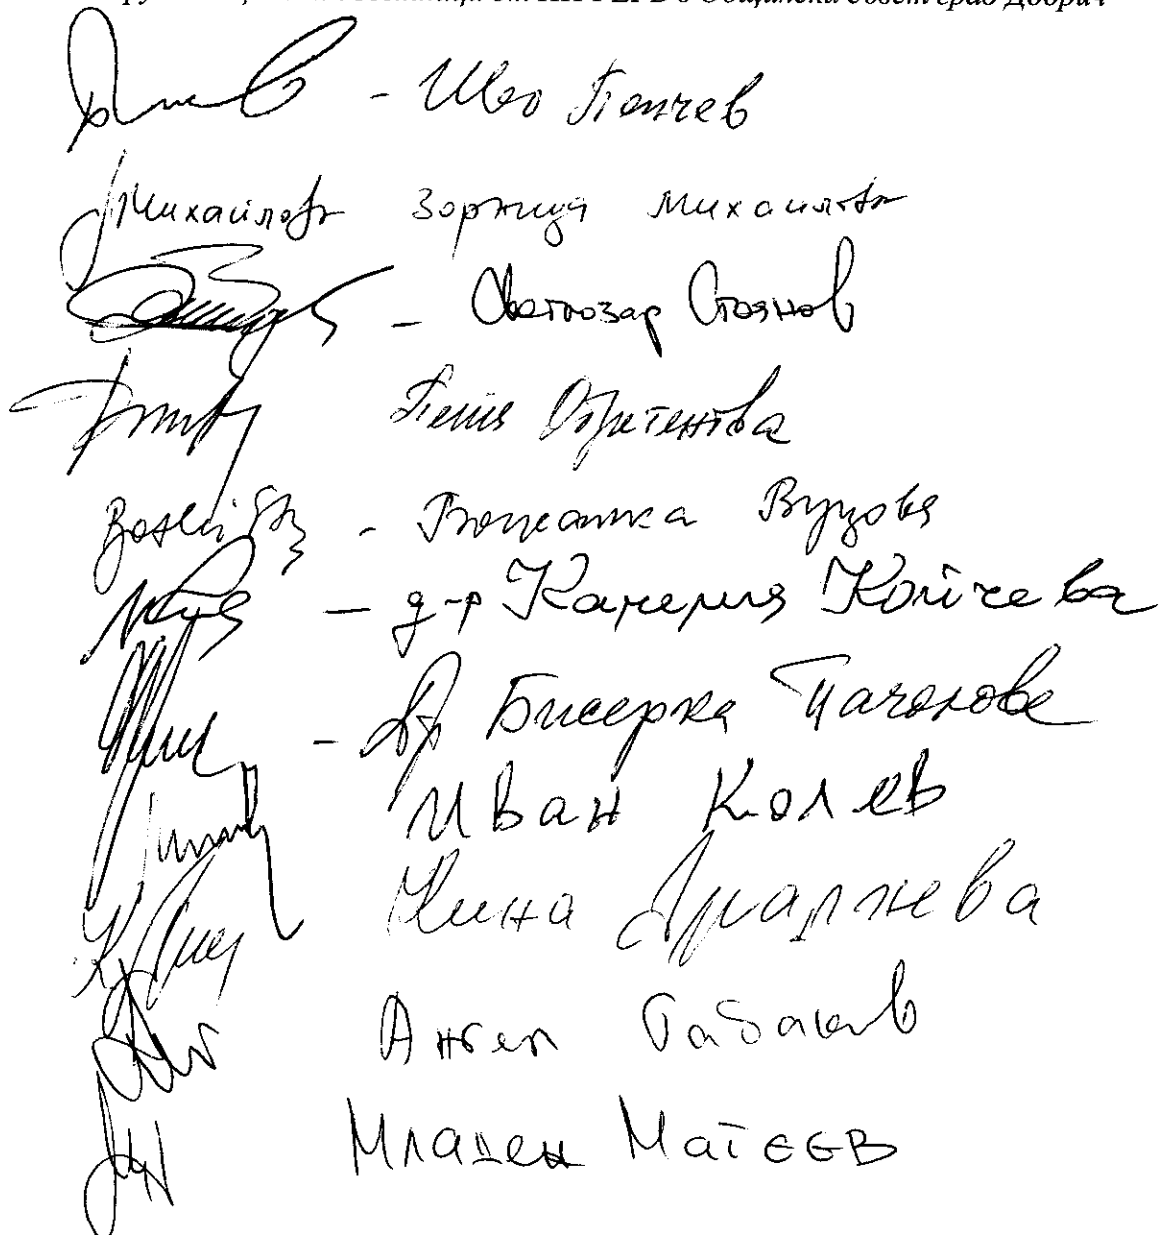 ПП ГЕРБ в Общински съвет град Добрич
- Иво Пенчев
Михайлова Зорница Михайлова
- Светлозар Стоянов
Петя Обретенова
- Божанка Вузова
- д-р Камелия Койчева
- др Бисерка
Иван Колев
Нина
Ангел Табаков
Младен Матеев